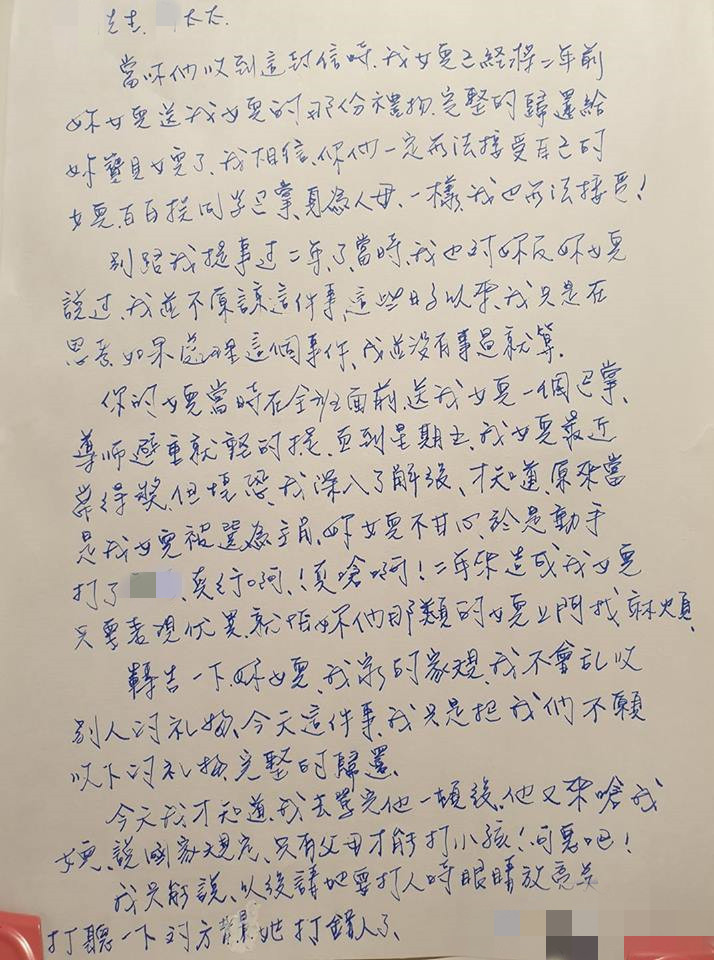 先生. 太太.
當你們收到這封信時,我女兒已經將二年前
妳女兒送我女兒的那份禮物,完整的歸還給
妳寶貝女兒了,我相信,你們一定無法接受自己的
女兒,百白挨同学巴掌,身為人母,一樣,我也無法接受!
別跟我提事过二年了,當時,我也对妳及妳女兒
說过,我並不原諒這件事,這些日子以來,我只是在
思考如果處理這個事件,我並沒有事過就算.
你的女兒當時在全班面前,送我女兒一個巴掌,
導師避重就輕的提,直到星期五,我女兒最近
常得獎,但 恐,我深入了解後,才知道,原來當
是我女兒被選為主角,妳女兒不甘心,於是動手
打了 ,真行啊,!真嗆啊!二年來造成我女兒
只要表現优異,就怕妳們那類的女兒上門找麻煩,
轉告一下,妳女兒,我家的家規,我不會乱收
別人的礼物,今天這件事,我只是把我們不願
收下的礼物,完整的歸還,
今天我才知道,我去學完他一頓後,他又來嗆我
女兒,說國家規定,只有父母才能打小孩!可惡吧!
我只能說,以後請她要打人時眼睛放亮
打聽一下对方 ,她打錯人了、